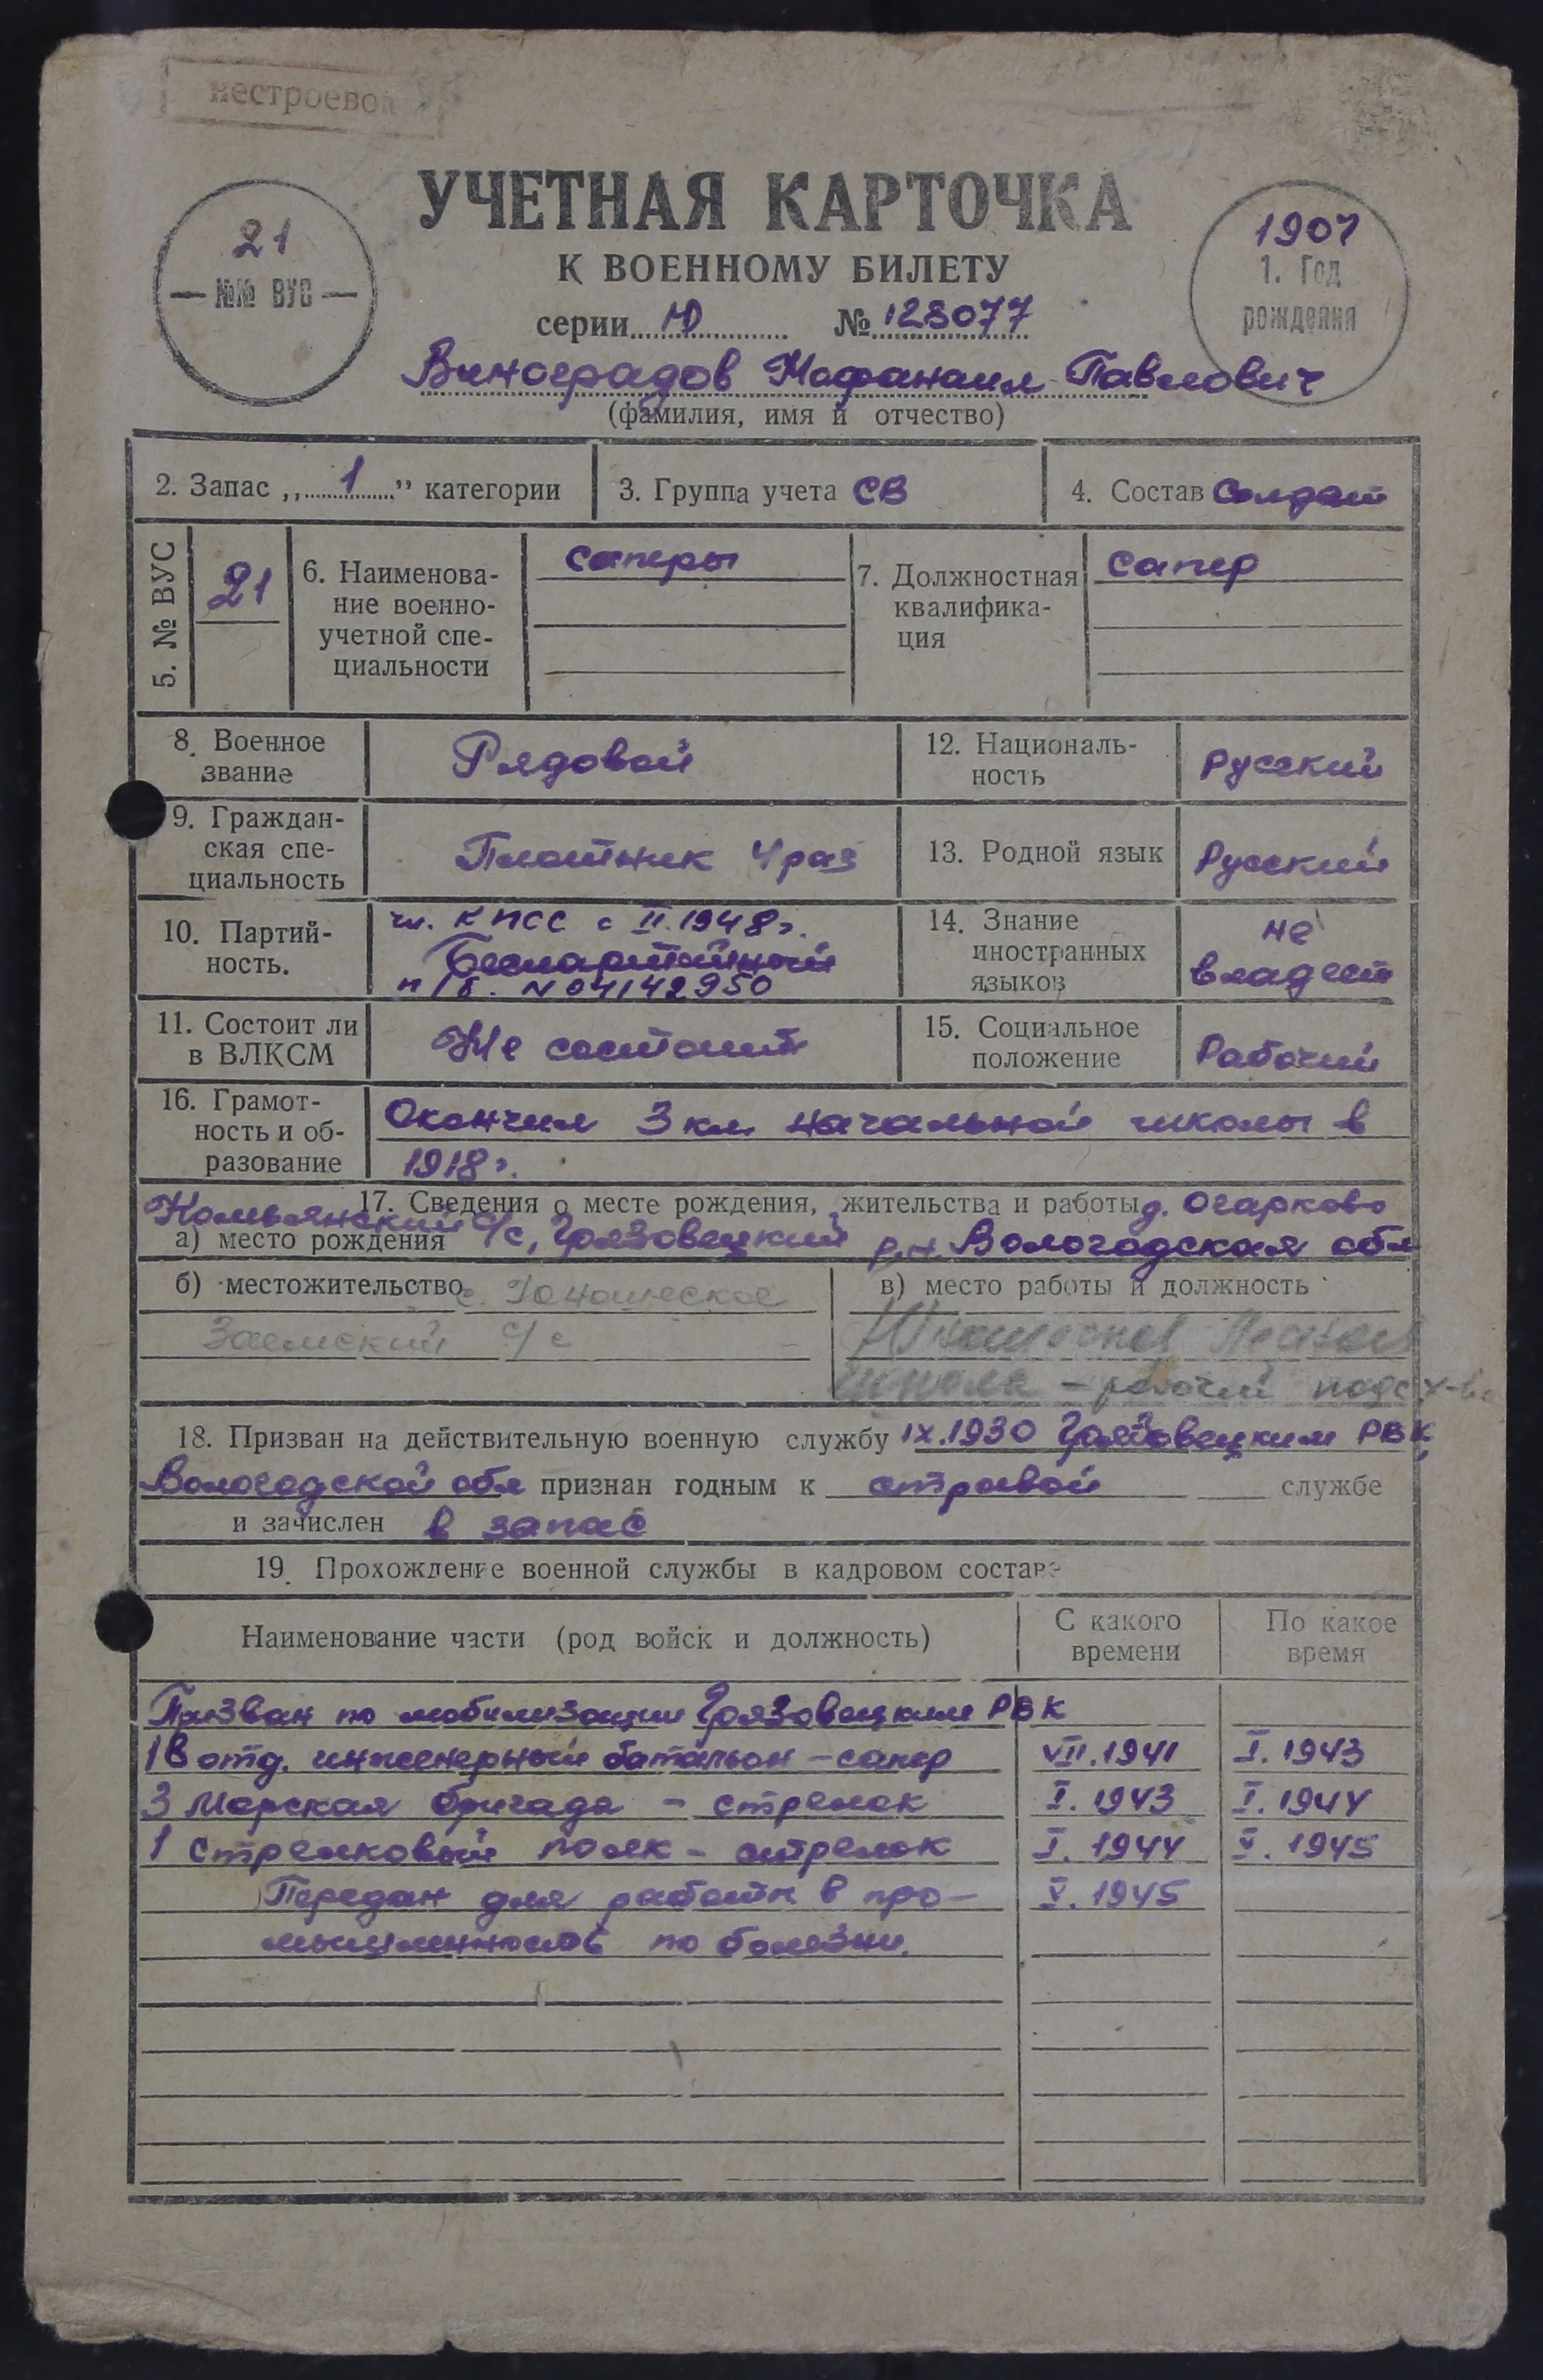 нестроевой
УЧЕТНАЯ КАРТОЧКА
К ВОЕННОМУ БИЛЕТУ
21
№№ ВУС
1907
1. Год
рождения
серии Ю № 128077
Виноградов Нафанаил Павлович
(фамилия, имя и отчество)
2. Запас „1” категории
3. Группа учета СВ
4. Состав Солдат
5. № ВУС
21
6. Наименова-
ние военно-
учетной спе-
циальности
саперы
7. Должностная
квалифика-
ция
сапер
8. Военное
звание
Рядовой
12. Националь-
ность
Русский
9. Граждан-
ская спе-
циальность
Плотник 4 раз
13. Родной язык
Русский
10. Партий-
ность.
чл. КПСС с II.1948г.
Беспартийный
п/б. N 04142950
14. Знание
иностранных
языков
не
владеет
11. Состоит ли
в ВЛКСМ
Не состоит
15. Социальное
положение
Рабочий
16. Грамот-
ность и об-
разование
Окончил 3 кл. начальной школы в
1918г.
17. Сведения о месте рождения, жительства и работы д. Огарково
а) место рождения с/с, Грязовецкий р-н Вологодская обл
б) местожительство с. Юношеское
Заемский с/с
в) место работы и должность
школа – рабочий
18. Призван на действительную военную службу IX.1930 Грязовецким РВК,
Вологодской обл признан годным к строевой службе
и зачислен в запас
19. Прохождение военной службы в кадровом составе
Наименование части (род войск и должность)
С какого
времени
По какое
время
Призван по мобилизации Грязовецким РВК
18 отд. инженерный батальон – сапер VII.1941 I.1943
3 Морская бригада – стрелок I.1943 I.1944
1 Стрелковый полк – стрелок I.1944 V.1945
Передан для работы в про- V.1945
мышленность по болезни.